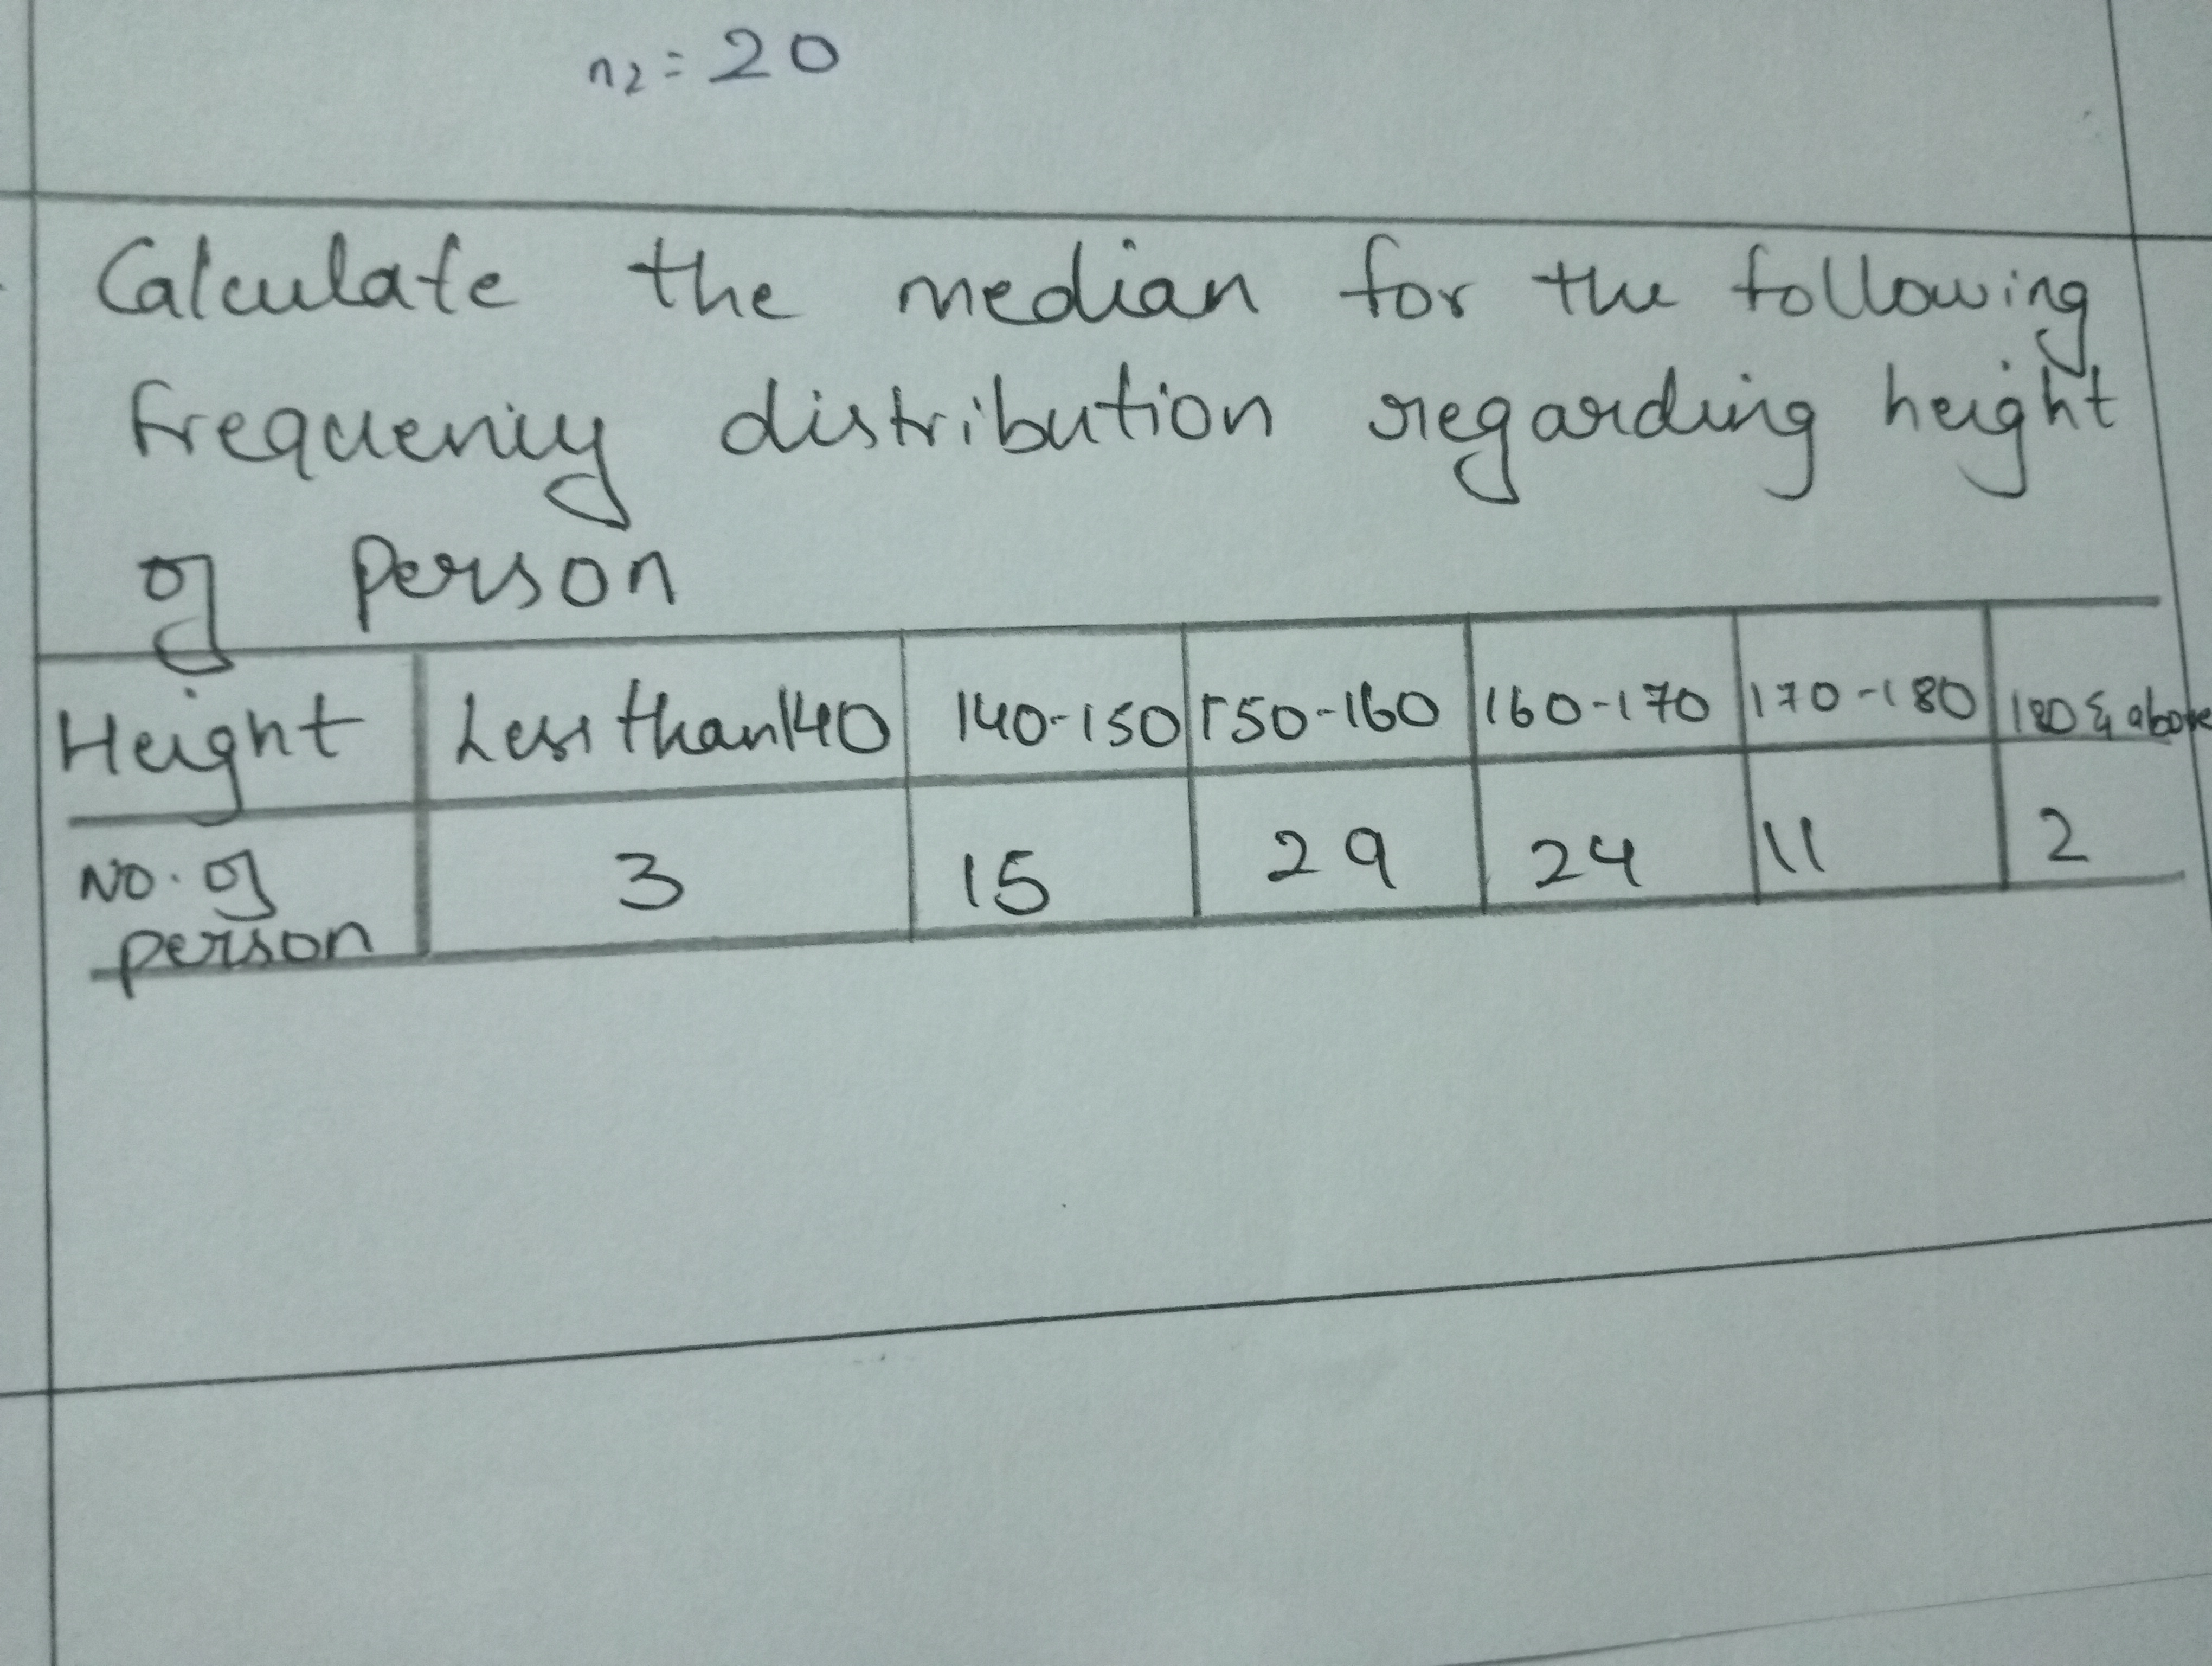 n2 = 20
Calculate the median for the following
frequency distribution regarding height
of person
Height Less than 140 140-150 150-160 160-170 170-180 180 & above
No. of person 3 15 29 24 11 2